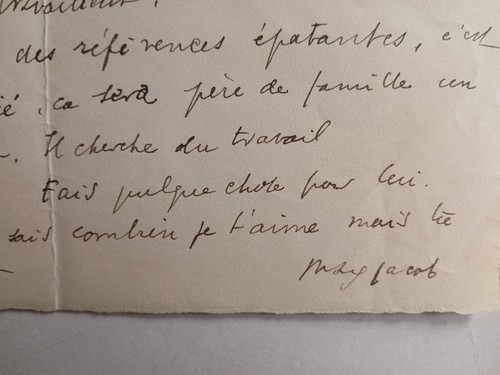 travaillent.
des références épatantes, c'est
ié, ça sera père de famille un
Il cherche du travail
Fais quelque chose pour lui.
sais combien je t'aime mais te
Max Jacob